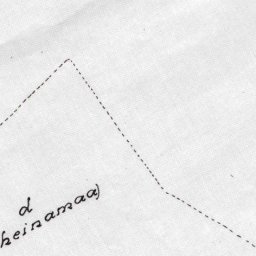 d
heinamaa)